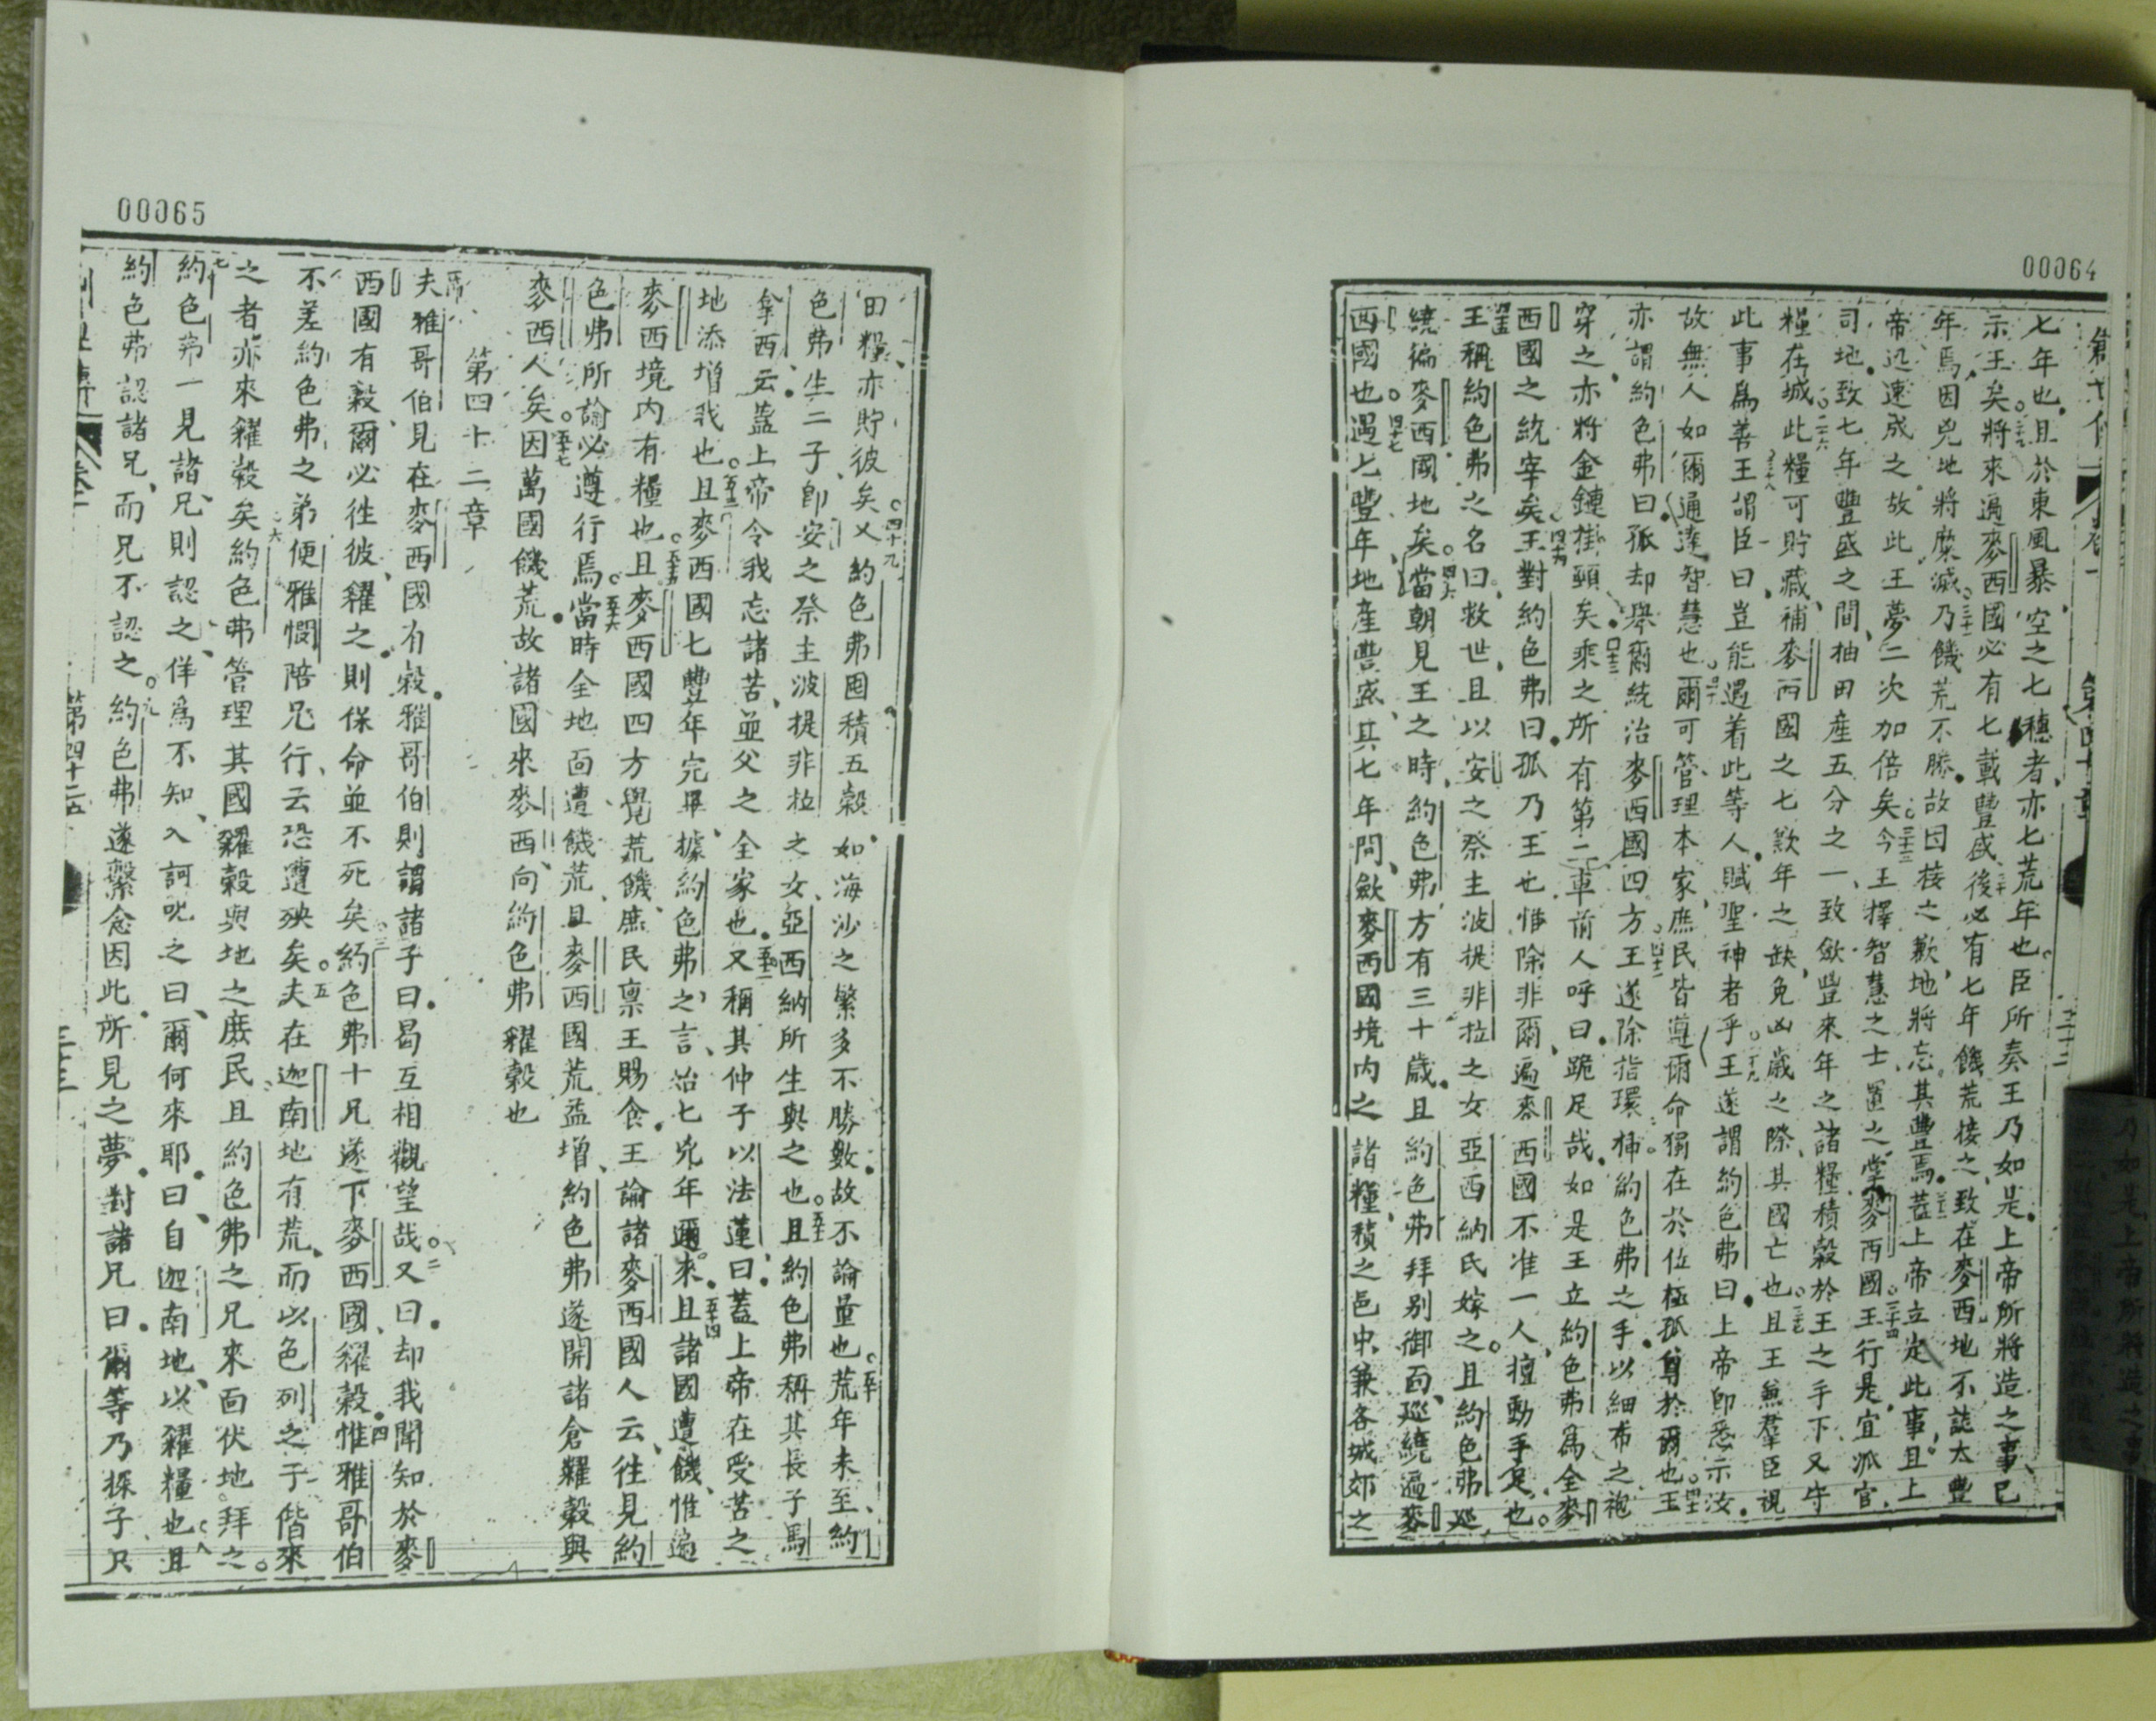 00064
七年也且於東風暴空之七穗者亦七荒年也臣所奏王乃如是上帝所將造之事已
示王矣將來遍麥西國必有七載豐盛後必有七年饑荒接之致在麥西地不誌大豐
年焉因兇地將糜滅乃饑荒不勝故因接之歉地將忘其豐焉蓋上帝立定此事且上
帝迅速成之故此王夢二次加倍矣今王擇智慧之士置之掌麥西國王行是宜派官
司地致七年豐盛之間抽田産五分之一致斂豐來年之諸糧積穀於王之手下又守
糧在城此糧可貯藏補麥西國之七歉年之缺免凶歲之際其國亡也且王無羣臣視
此事爲善王謂臣曰豈能遇着此等人賦聖神者乎王遂謂約色弗曰上帝卽悉示汝
故無人如爾通達智慧也爾可管理本家庶民皆遵爾命獨在於位極孤尊於爾也王
亦謂約色弗曰孤却舉爾統治麥西國四方王遂除指環插約色弗之手以細布之袍
穿之亦將金鏈掛頸矣乘之所有第二車前人呼曰跪足哉如是王立約色弗爲全麥
西國之統宰矣王對約色弗曰孤乃王也惟除非爾遍麥西國不准一人擅動手足也
王稱約色弗之名曰救世且以安之祭主波提非拉之女亞西納氏嫁之且約色弗巡
繞徧麥西國地矣當朝見王之時約色弗方有三十歲且約色弗拜别御面巡繞遍麥
西國也遇七豐年地產豐盛其七年間斂麥西國境内之諸糧積之邑中兼各城郊之
00065
田糧亦貯彼矣四十九又約色弗囤積五穀如海沙之繁多不勝數故不論量也荒年未至約
色弗生二子卽安之祭主波提非拉之女亞西納所生與之也且約色弗稱其長子馬
拿西云蓋上帝令我忘諸苦並父之全家也又稱其仲子以法蓮曰蓋上帝在受苦之
地添增我也且麥西國七豐年完畢據約色弗之言治七兇年邇來且諸國遭饑惟遍
麥西境内有糧也且麥西國四方覺荒饑庶民禀王賜食王論諸麥西國人云往見約
色弗所論必遵行焉當時全地面遭饑荒且麥西國荒益增約色弗遂開諸倉糶穀與
麥西人矣五十七因萬國饑荒故諸國來麥西向約色弗糴穀也
第四十二章
夫雅哥伯見在麥西國有穀雅哥伯則謂諸子曰曷互相觀望哉二又曰却我聞知於麥
西國有穀爾必徃彼糴之則保命並不死矣三約色弗十兄遂下麥西國糴穀四惟雅哥伯
不差約色弗之弟便雅憫陪兄行云恐遭殃矣五夫在迦南地有荒而以色列之子偕來
之者亦來糴穀矣六約色弗管理其國糶穀與地之庶民且約色弗之兄來面伏地拜之
七約色弗一見諸兄則認之佯爲不知入訶叱之曰爾何來耶曰自迦南地以糴糧也八且
約色弗認諸兄而兄不認之九約色弗遂繫念因此所見之夢對諸兄曰爾等乃探子只
第四十二五